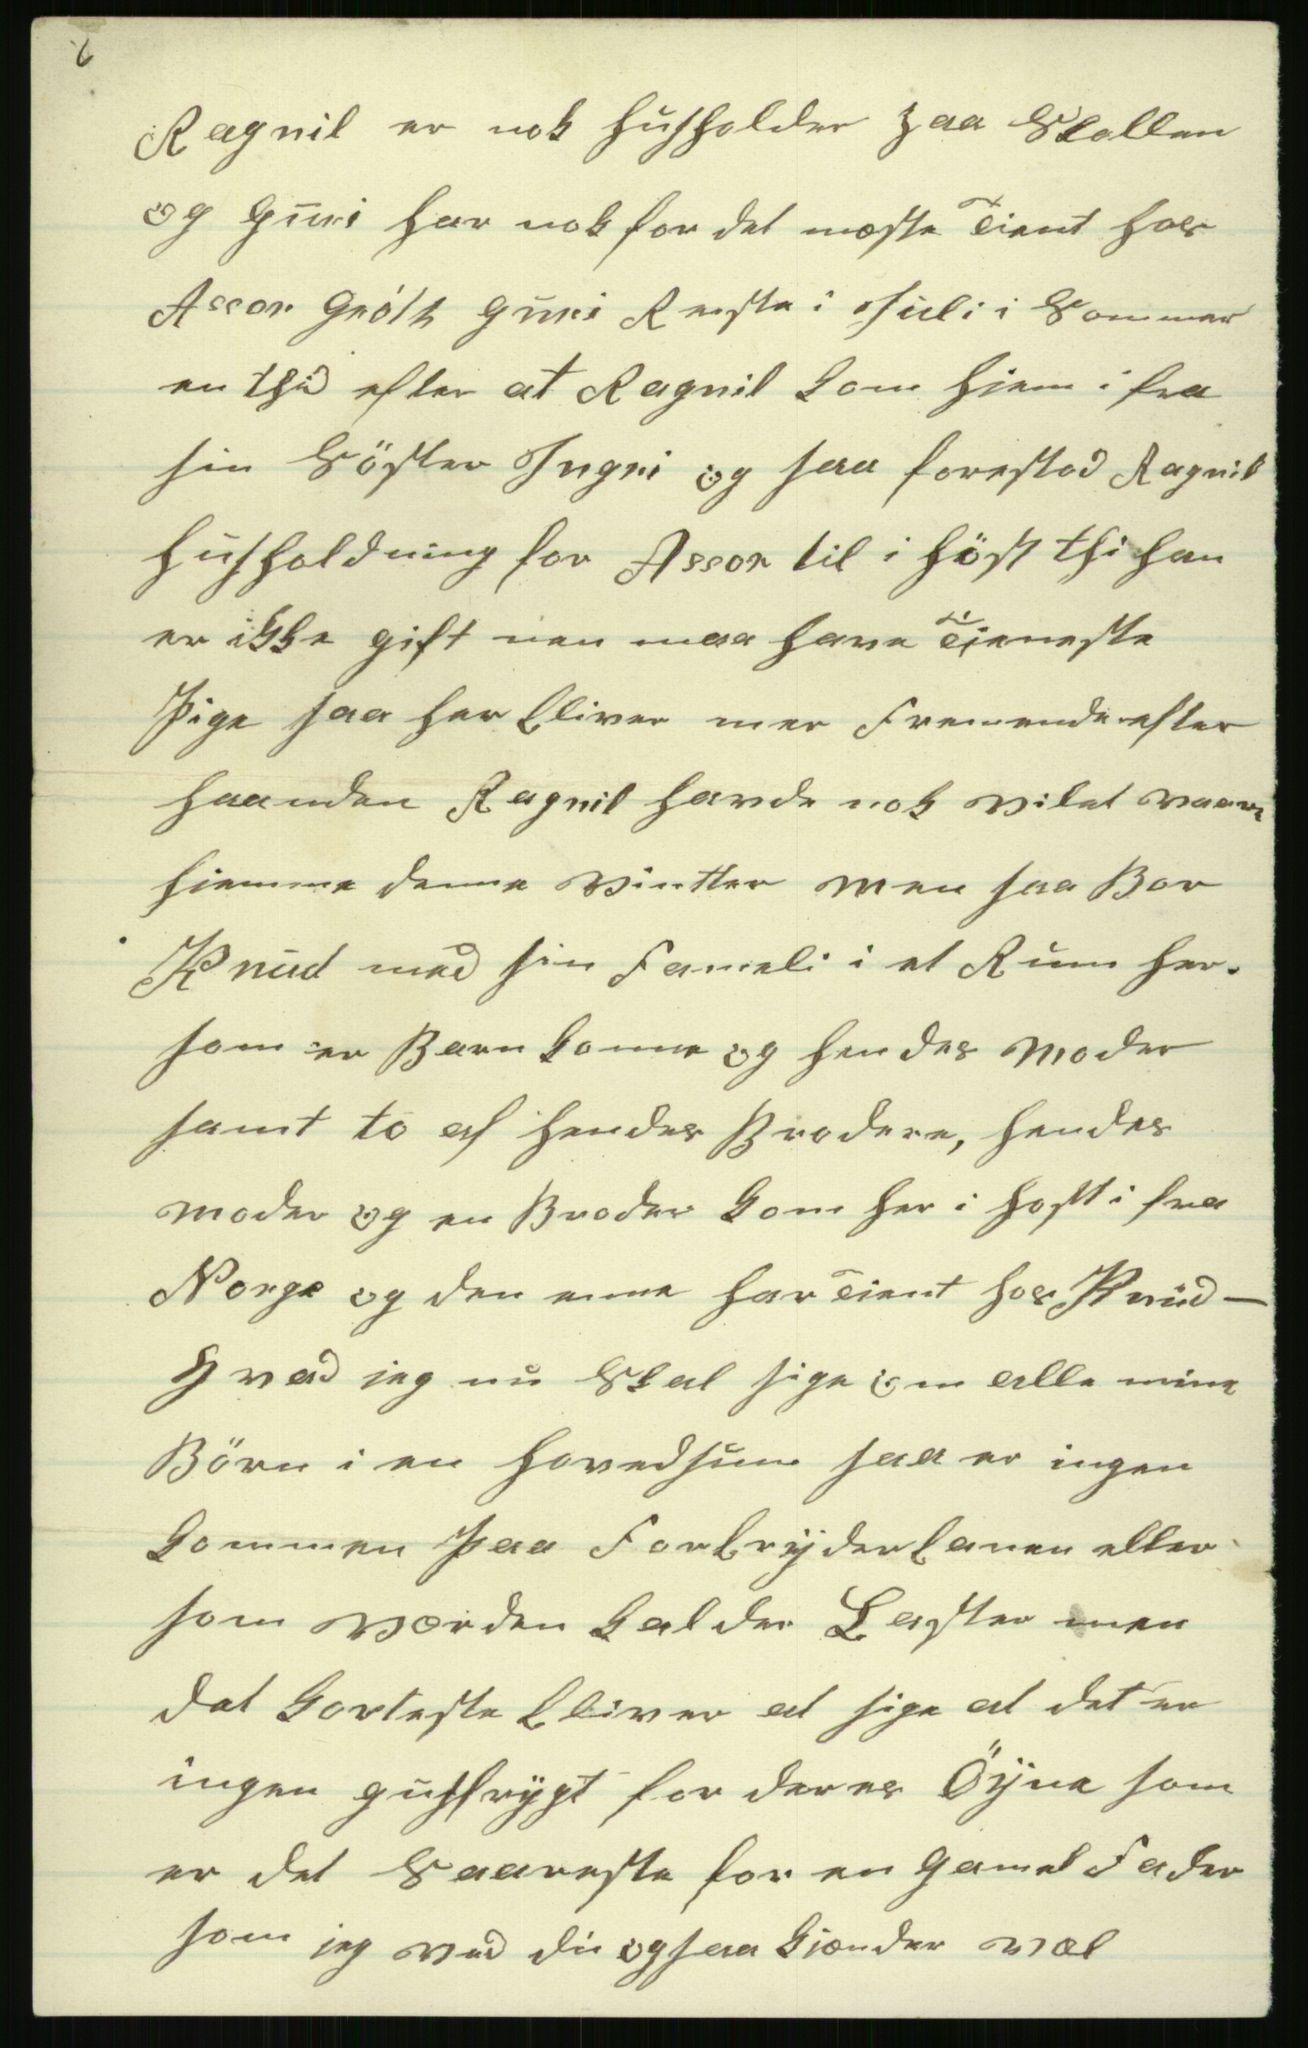 6
Ragnil er nok husholder paa Skollen
og Guri har nok for det meste Tient hos
Assor Gróth Guri Reiste i Juli i Sommer
en thid efter at Ragnil kom hjem i fra
sin Söster Ingri og saa forestod Ragnil
husholdning for Assor til i höst thi han
er ikke gift men maa have Tjeneste
Pige saa her bliver mer Fremende efter
haanden Ragnil havde nok vilet være
hjemme denne Vintter men saa Bor
Knud med sin Fameli i et Rum her.
som er Barn konne og hendes Moder
samt to af hendes Brodere, hendes
moder og en Broder kom her i host i fra
Norge og den enne har Tient hos Knud —
Hvad jeg nu Skal sige om alle mine
Börn i en hovedsum saa er ingen
kommen paa Forbryderbanen eller
som Verden kalder Laster men
det korteste bliver at sige at det er
ingen gusfrygt for deres Öyne som
er det Saareste for en Gamel Fader
som jeg ved du ogsaa kjender vel